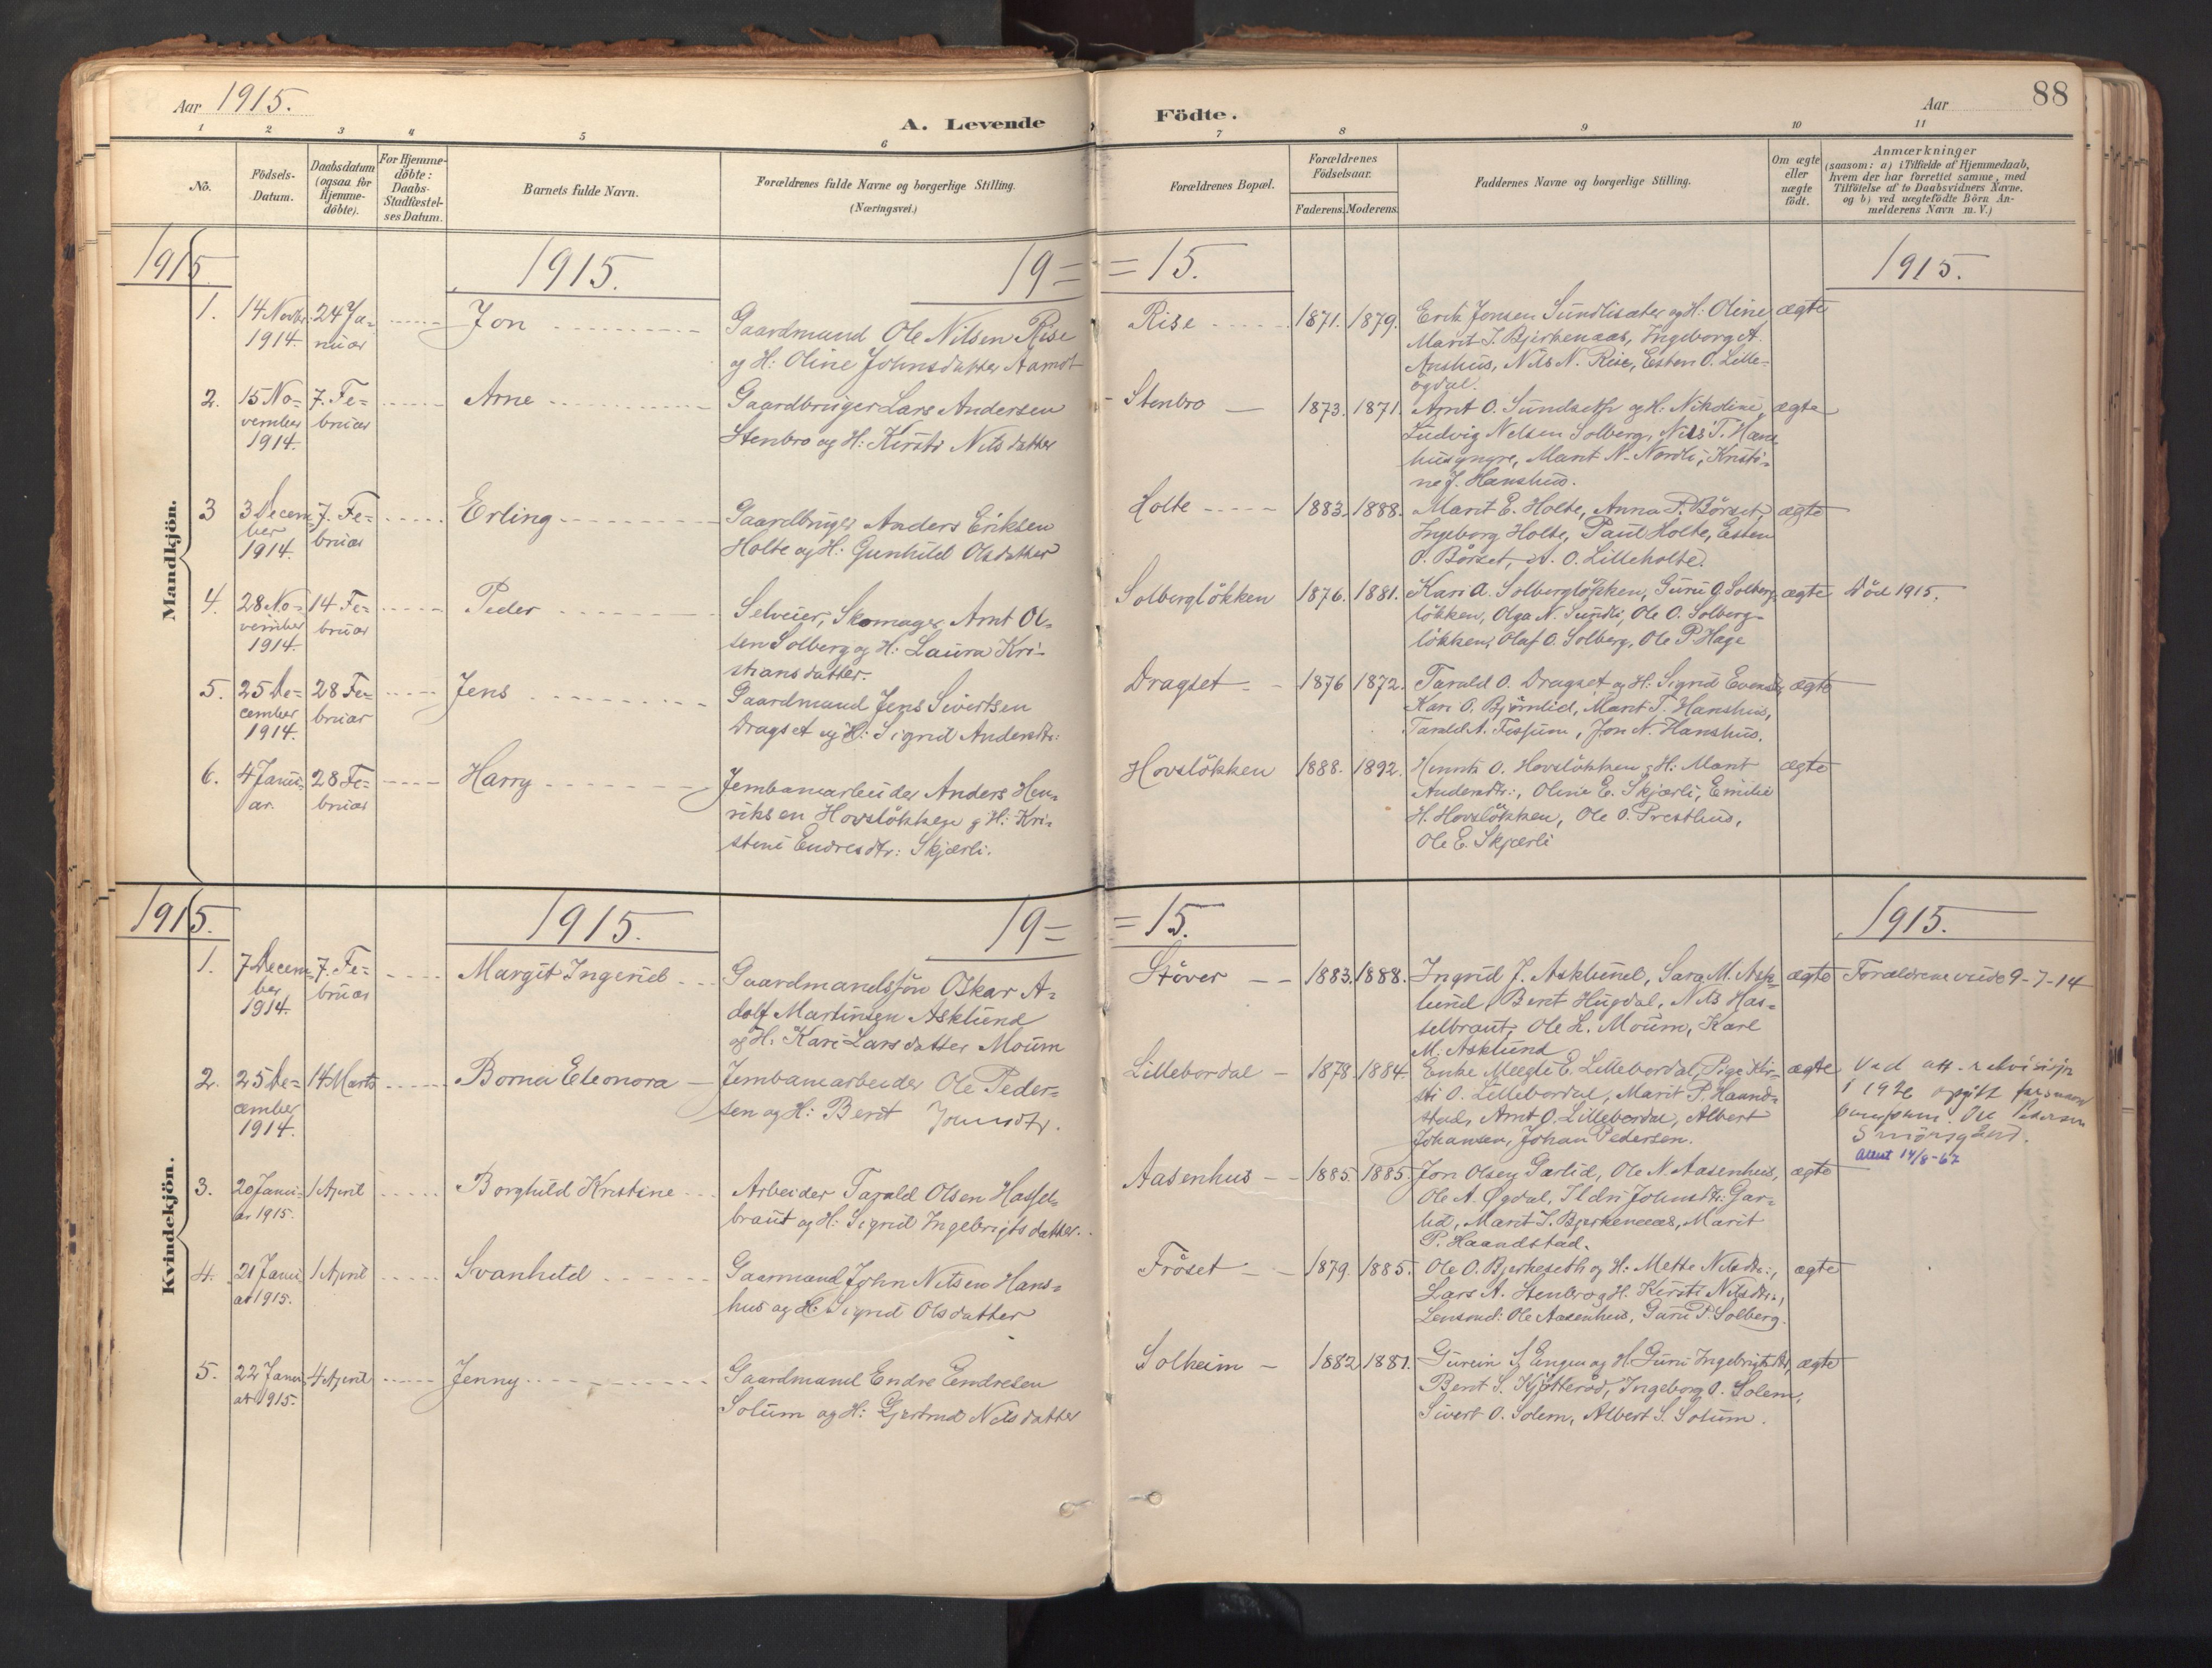 Aar 1915.
A. Levende Födte.
Aar
88
1 2 3 4 5 6 7 8 9 10 11
No.
Födsels-
Datum.
Daabsdatum
(ogsaa for
Hjemme-
döbte).
For Hjemme-
döbte:
Daabs-
Stadfæstel-
ses Datum.
Barnets fulde Navn.
Forældrenes fulde Navne og borgerlige Stilling.
(Næringsvei.)
Forældrenes Bopæl.
Forældrenes
Födselsaar.
Faderens. Moderens.
Faddernes Navne og borgerlige Stilling.
Om ægte
eller
uægte
födt.
Anmærkninger
(saasom: a) i Tilfælde af Hjemmedaab,
hvem der har forrettet samme, med
Tilföielse af to Daabsvidners Navne.
og b) ved uægtefödte Börn An-
melderens Navn m. V.)
Mandkjön.
1915 1915. 19= =15. 1915.
1.
14 Novbr.
1914.
24 Ja-
nuar
Jon
Gaardmand Ole Nilsen Rise
og H: Oline Johnsdatter Aamot
Rise
1871. 1879.
Erik Jonsen Sundlisæter og H: Oline
Marit J. Bjerkenaas, Ingeborg A.
Anshus, Nils N. Rise, Esten O. Lille-
ögdal.
ægte
2.
15 No-
vember
1914.
7. Fe-
bruar
Arne
Gaardbruger Lars Andersen
Stenbro og H: Kirsti Nilsdatter
Stenbro
1873. 1871.
Arnt O. Sundseth og H: Nikoline,
Ludvig Nelsen Solberg, Nils T. Hans-
husyngre, Marit N. Nordli, Kristi-
ne J. Hanshus.
ægte
3
3 Decem-
ber
1914.
7. Fe-
bruar
Erling
Gaardbruger Anders Eriksen
Holte og H: Gunhild Olsdatter
Holte
1883. 1888.
Marit E. Holte, Anna P. Börset,
Ingeborg Holte, Paul Holte, Esten
O. Börset, N. O. Lilleholte.
ægte
4.
28 No-
vember
1914.
14 Fe-
bruar
Peder
Selveier, Skomager Arnt Ol-
sen Solberg og H: Laura Kri-
stiansdatter.
Solberglökken
1876. 1881.
Kari A. Solberglökken, Guru O. Solberg-
lökken, Olga N. Sundli, Ole O. Solberg-
lökken, Olaf O. Solberg, Ole P. Hage
ægte
Död 1915.
5.
25 De-
cember
1914.
28 Fe-
bruar
Jens
Gaardmand Jens Sivertsen
Dragset og H: Sigrid Andersdtr:
Dragset
1876 1872.
Tarald O. Dragset og H: Sigrid Evensdtr,
Kari O. Bjørnlid, Marit T. Hanshus,
Tarald A. Fossum, Jon N. Hanshus.
ægte
6.
4 Janu-
ar.
28 Fe-
bruar
Harry
Jernbanearbeider Anders Hen-
riksen Hovslökken g H: Kri-
stine Endresdtr: Skjærli.
Hovslökken
1888. 1892.
Henrik O. Hovslökken g H: Marit
Andersdtr:, Oline E. Skjærli, Emilie
H. Hovslökken, Ole O. Presthus,
Ole E. Skjærli
ægte
Kvindekjön.
1915. 1915. 19= =15. 1915.
1.
7 Decem-
ber
1914.
7. Fe-
bruar
Margit Ingerid
Gaardmandssön Oskar A-
dolf Martinsen Asklund
og H: Kari Larsdatter Moum
Stöver
1883. 1888.
Ingrid J. Asklund, Sara M. Ask-
lund, Berit Hugdal, Nils Has-
selbraut, Ole L. Moum, Karl
M. Asklund
ægte
Forældrene viede 9-7-14
2.
25 De-
cember
1914.
14 Marts
Borna Eleonora
Jernbanearbeider Ole Peder-
sen og H: Berit Jonsdtr.
Lillebordal
1878. 1884.
Enke Meegli E. Lillebordal, Pige Kir-
sti O. Lillebordal, Marit P. Haand-
stad, Arnt O. Lillebordal, Albert
Johansen, Johan Pedersen.
ægte
Ved att. rekvisisjn
i 1926 opgitt farsnavn
Ole Pedersen
attest 14/8-67
3.
20 Janu-
ar 1915.
1 April
Borghild Kristine
Arbeider Tarald Olsen Hassel-
braut og H: Sigrid Ingebrigtsdatter.
Aasenhus
1885. 1885.
Jon Olsen Garlid, Ole N. Aasenhus,
Ole A. Øgdal, Ildri Johnsdtr: Gar-
lid, Marit J. Bjerkenaas, Marit
P. Haandstad.
ægte
4.
21 Janu-
ar 1915.
1 April
Svanhild
Gaarmand John Nilsen Hans-
hus og H: Sigrid Olsdatter
Fröset
1879. 1885.
Ole O. Bjerkeseth og H: Mette Nilsdtr:,
Lars A. Stenbro g H. Kirsti Nilsdtr:,
Lensmd: Ole Aasenhus, Guru P. Solberg.
ægte
5.
22 Janu-
ar 1915.
4 April
Jenny
Gaardmand Endre Endresen
Solum og H: Gjertrud Nilsdatter
Solheim
1882 1881.
S. Engen og H. Guru Ingebrigtsdtr,
Berit S. Kjötteröd, Ingeborg O. Solem,
Sivert O. Solem, Albert S. Solum.
ægte